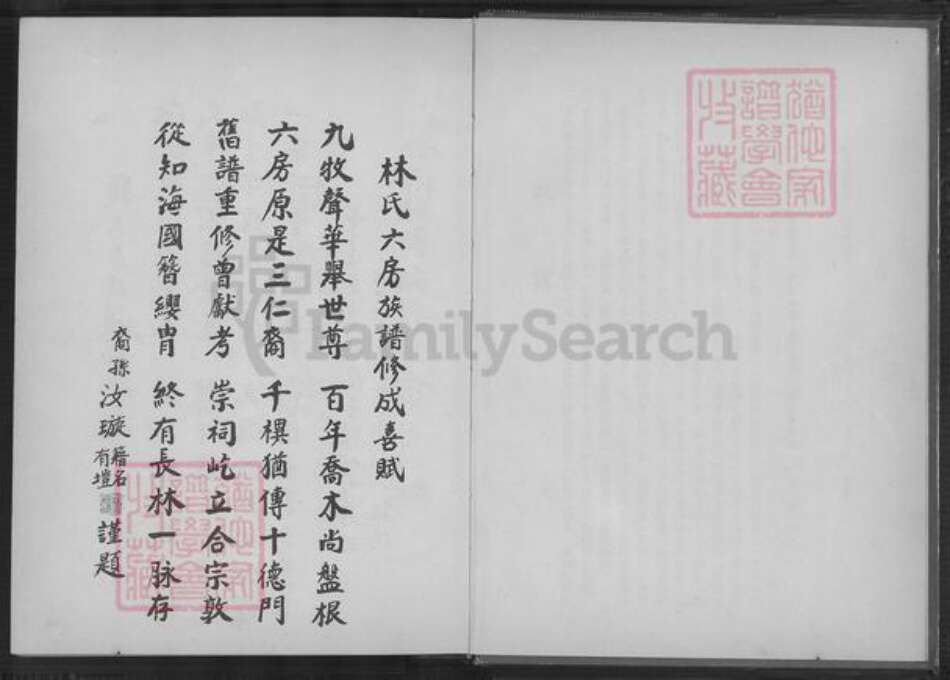 林氏六房族譜修成喜賦
九牧聲華舉世尊 百年喬木尚盤根
六房原是三仁裔 千禩猶傳十德門
舊譜重修曾獻考 崇祠屹立合宗敦
從知海國簪纓胄 終有長林一脉存
裔孫汝璇籍名有塏謹題
猶他家
譜學會
收藏
猶他家
譜學會
收藏
FamilySearch